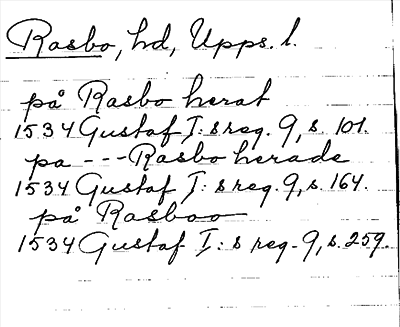 Rasbo, hd, Upps. l.
på Rasbo herat
1534 Gustaf I: s reg. 9, s. 101.
pa --- Rasbo herade
1534 Gustaf I: s reg. 9, s. 164.
på Rasboo
1534 Gustaf I: s reg. 9, s. 259.